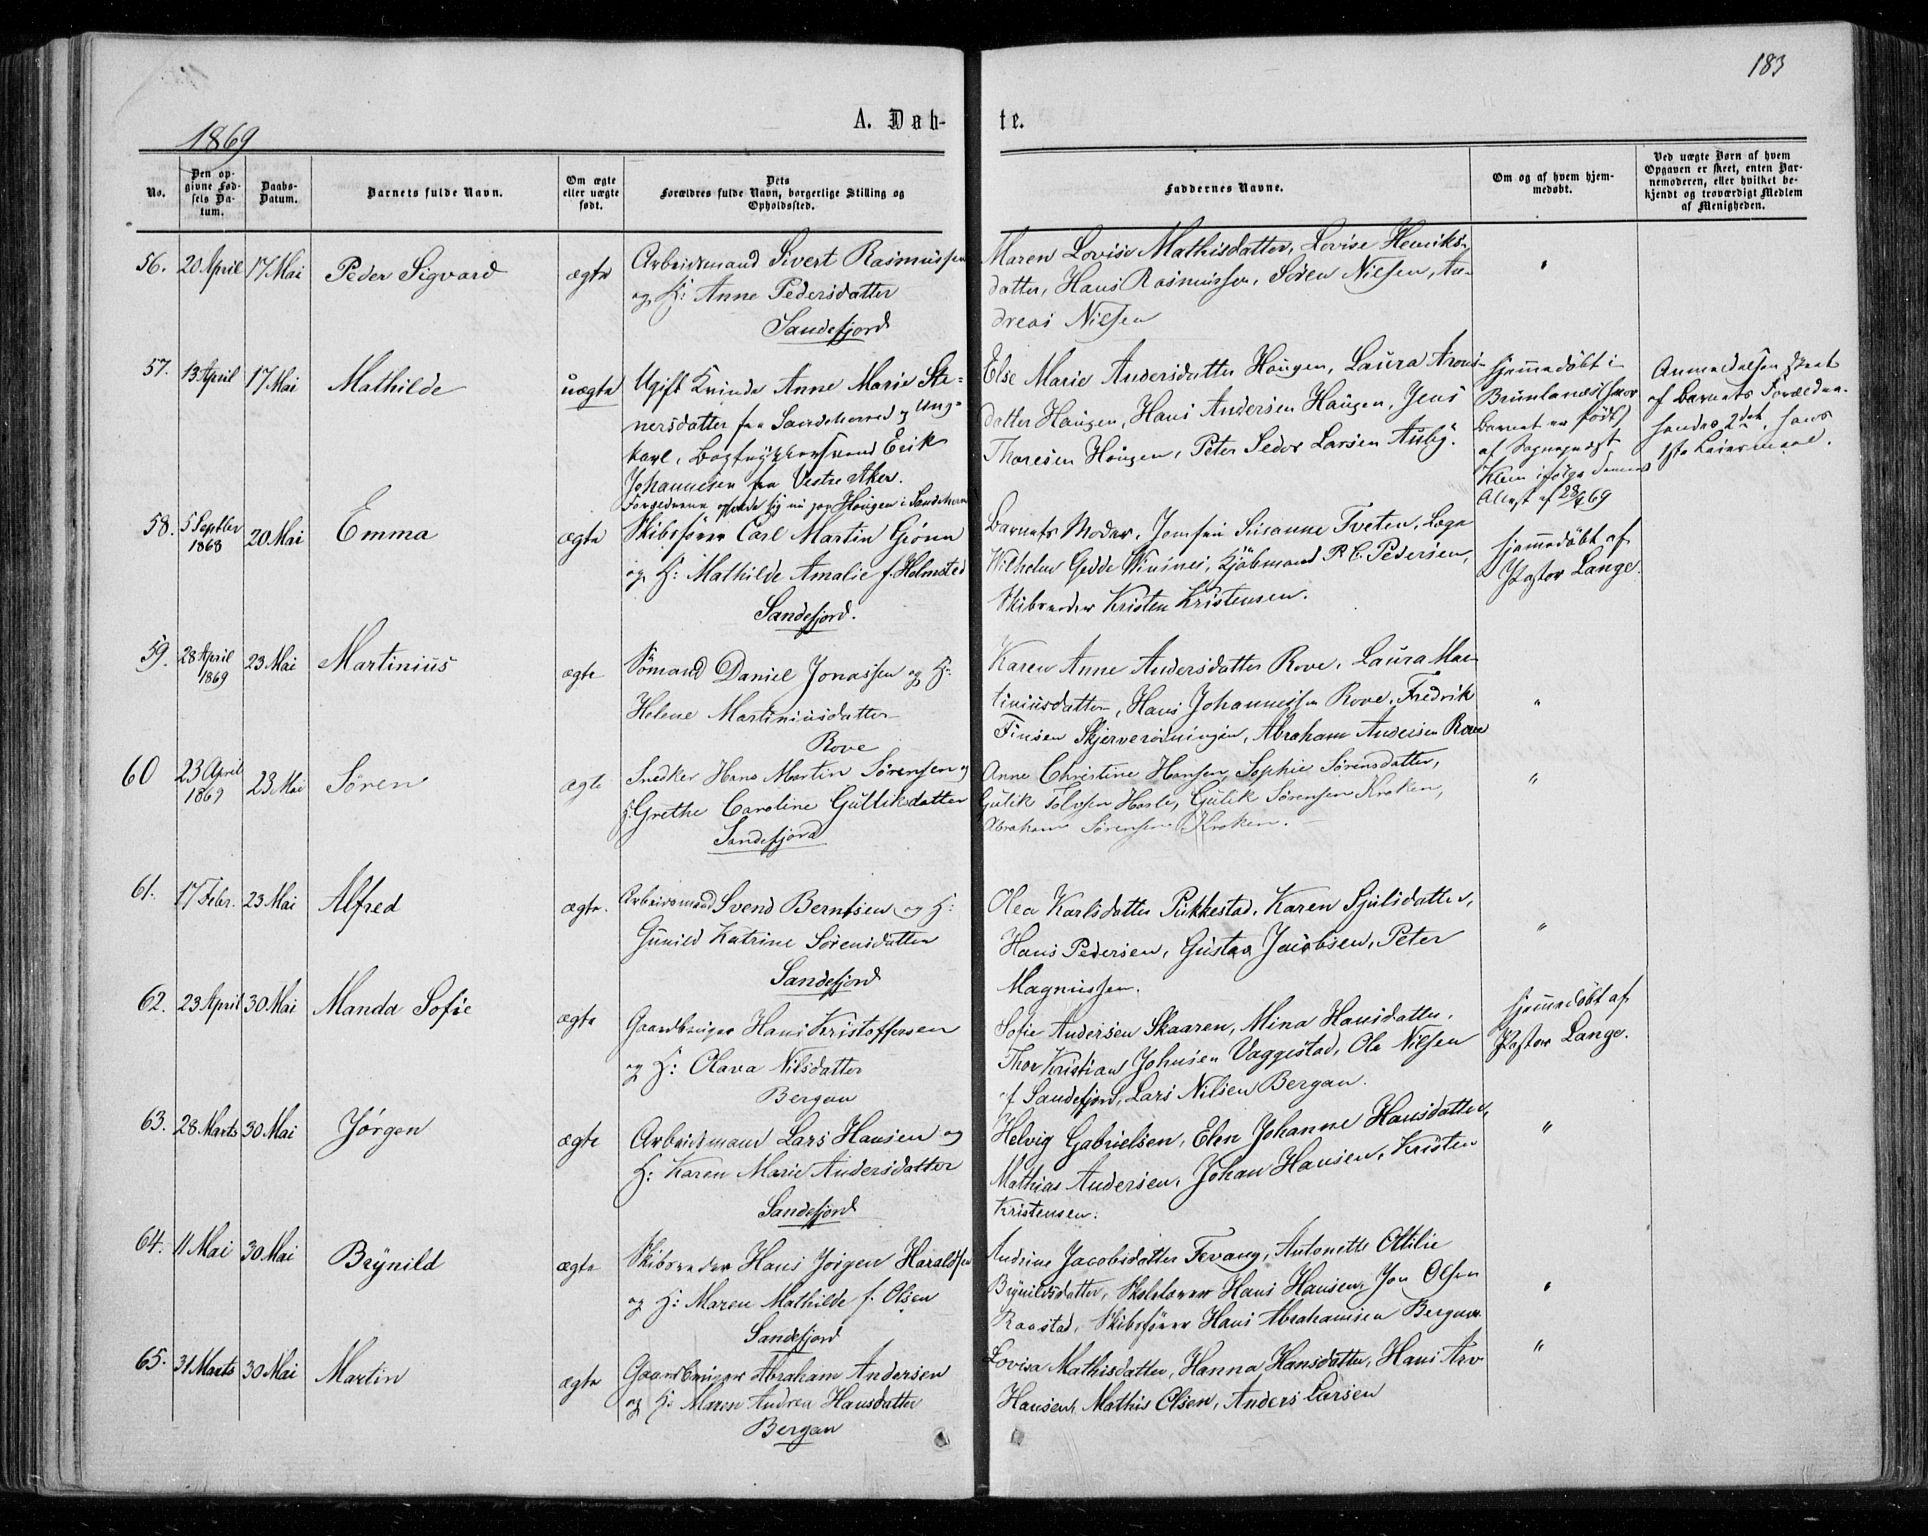 183
A. Døb-
te.
1869
No.
Den op-
givne Fød-
sels Da-
tum.
Daabs-
Datum.
Barnets fulde Navn.
Om ægte
eller uægte
født.
Dets
Forældres fulde Navn, borgerlige Stilling og
Opholdssted.
Faddernes Navne.
Om og af hvem hjem-
medøbt.
Ved uægte Børn af hvem
Opgaven er skeet, enten Bar-
nemoderen, eller hvilket be-
kjendt og troværdigt Medlem
af Menigheden.
56. 20 April 17 Mai Peder Sigvard ægte
Arbeidsmand Sivert Rasmussen
og H: Anne Pedersdatter
Sandefjord
Maren Lovise Mathisdatter, Lovise Henriks-
datter, Hans Rasmussen, Søren Nilsen, An-
dreas Nilsen
"
57. 13 April 17 Mai Mathilde uægte
Ugift Kvinde Anne Marie Ste-
nersdatter fra Sandeherred og Ung-
karl, Erik
Johannesen fra Vestre Aker.
Forældrene sig nu paa Haugen i Sandeherred
Else Marie Andersdatter Haugen, Laura Arons-
datter Haugen, Hans Andersen Haugen, Jens
Thoresen Haugen, Peter Larsen Auby.
Hjemmedøbt i
Brunlanes (hvor
Barnet er født)
af Sogneprest
Klem ifølge dennes
Attest af 69
Anmeldelsen skeet
af Barnets Forældre.
hendes 2det, hans
1ste Leiermaal.
58. 5 Septbr
1868 20 Mai Emma ægte
Skibsfører Carl Martin Gjønn
og H: Mathilde Amalie f. Holmsted
Sandefjord.
Barnets Moder, Jomfru Susanne Tveten, Læge
Wilhelm Gedde Winsnes, Kjøbmand P. C. Pedersen,
Skibsreder Kristen Kristensen.
Hjemmedøbt af
Pastor Lange.
59. 28 April
1869 23 Mai Martinius ægte
Sømand Daniel Jonassen og H:
Helene Martiniusdatter
Rove
Karen Anne Andersdatter Rove, Laura Mar-
tiniusdatter, Hans Johannessen Rove, Fredrik
Finsen Skjerverødningen, Abraham Andersen Rove
"
60 23 April
1869 23 Mai Søren ægte
Snedker Hans Martin Sørensen og
H: Grethe Caroline Gulliksdatter
Sandefjord
Anne Christine Hansen, Sophie Sørensdatter,
Gulik Hasle, Gulik Sørensen Kroken,
Abraham Sørensen Kroken.
"
61. 17 Febr. 23 Mai Alfred ægte.
Arbeidsmand Svend Berntsen og H:
Gunild Katrine Sørensdatter
Sandefjord
Olea Karlsdatter Pukkestad, Karen Sjulsdatter,
Hans Pedersen, Gustav Jacobsen, Peter
Magnussen.
"
62. 23 April 30 Mai Manda Sofie ægte
Gaardbruger Hans Kristoffersen
og H: Olava Nilsdatter
Bergan
Sofie Andersen Skaaren, Mina Hansdatter,
Thor Kristian Johnsen Vaggestad, Ole Nilsen
af Sandefjord, Lars Nilsen Bergan.
Hjemmedøbt af
Pastor Lange.
63. 28 Marts 30 Mai Jørgen ægte
Arbeidsmand Lars Hansen og
H: Karen Marie Andersdatter
Sandefjord
Helvig Gabrielsen, Elen Johanne Hansdatter,
Mathias Andersen, Johan Hansen, Kristen
Kristensen.
"
64. 11 Mai 30 Mai Brynild ægte
Skibsreder Hans Jørgen Haraldsen
og H: Maren Mathilde f. Olsen
Sandefjord
Andrine Jacobsdatter Fevang, Antonette Ottilie
Brynildsdatter, Skolelærer Hans Hansen, Jon Olsen
Raastad, Skibsfører Hans Abrahamsen Bergan
"
65. 31 Marts 30 Mai Martin ægte
Gaardbruger Abraham Andersen
og H: Maren Andrea Hansdatter
Bergan
Lovisa Mathisdatter, Hanna Hansdatter, Hans
Hansen, Mathis Olsen, Anders Larsen
"